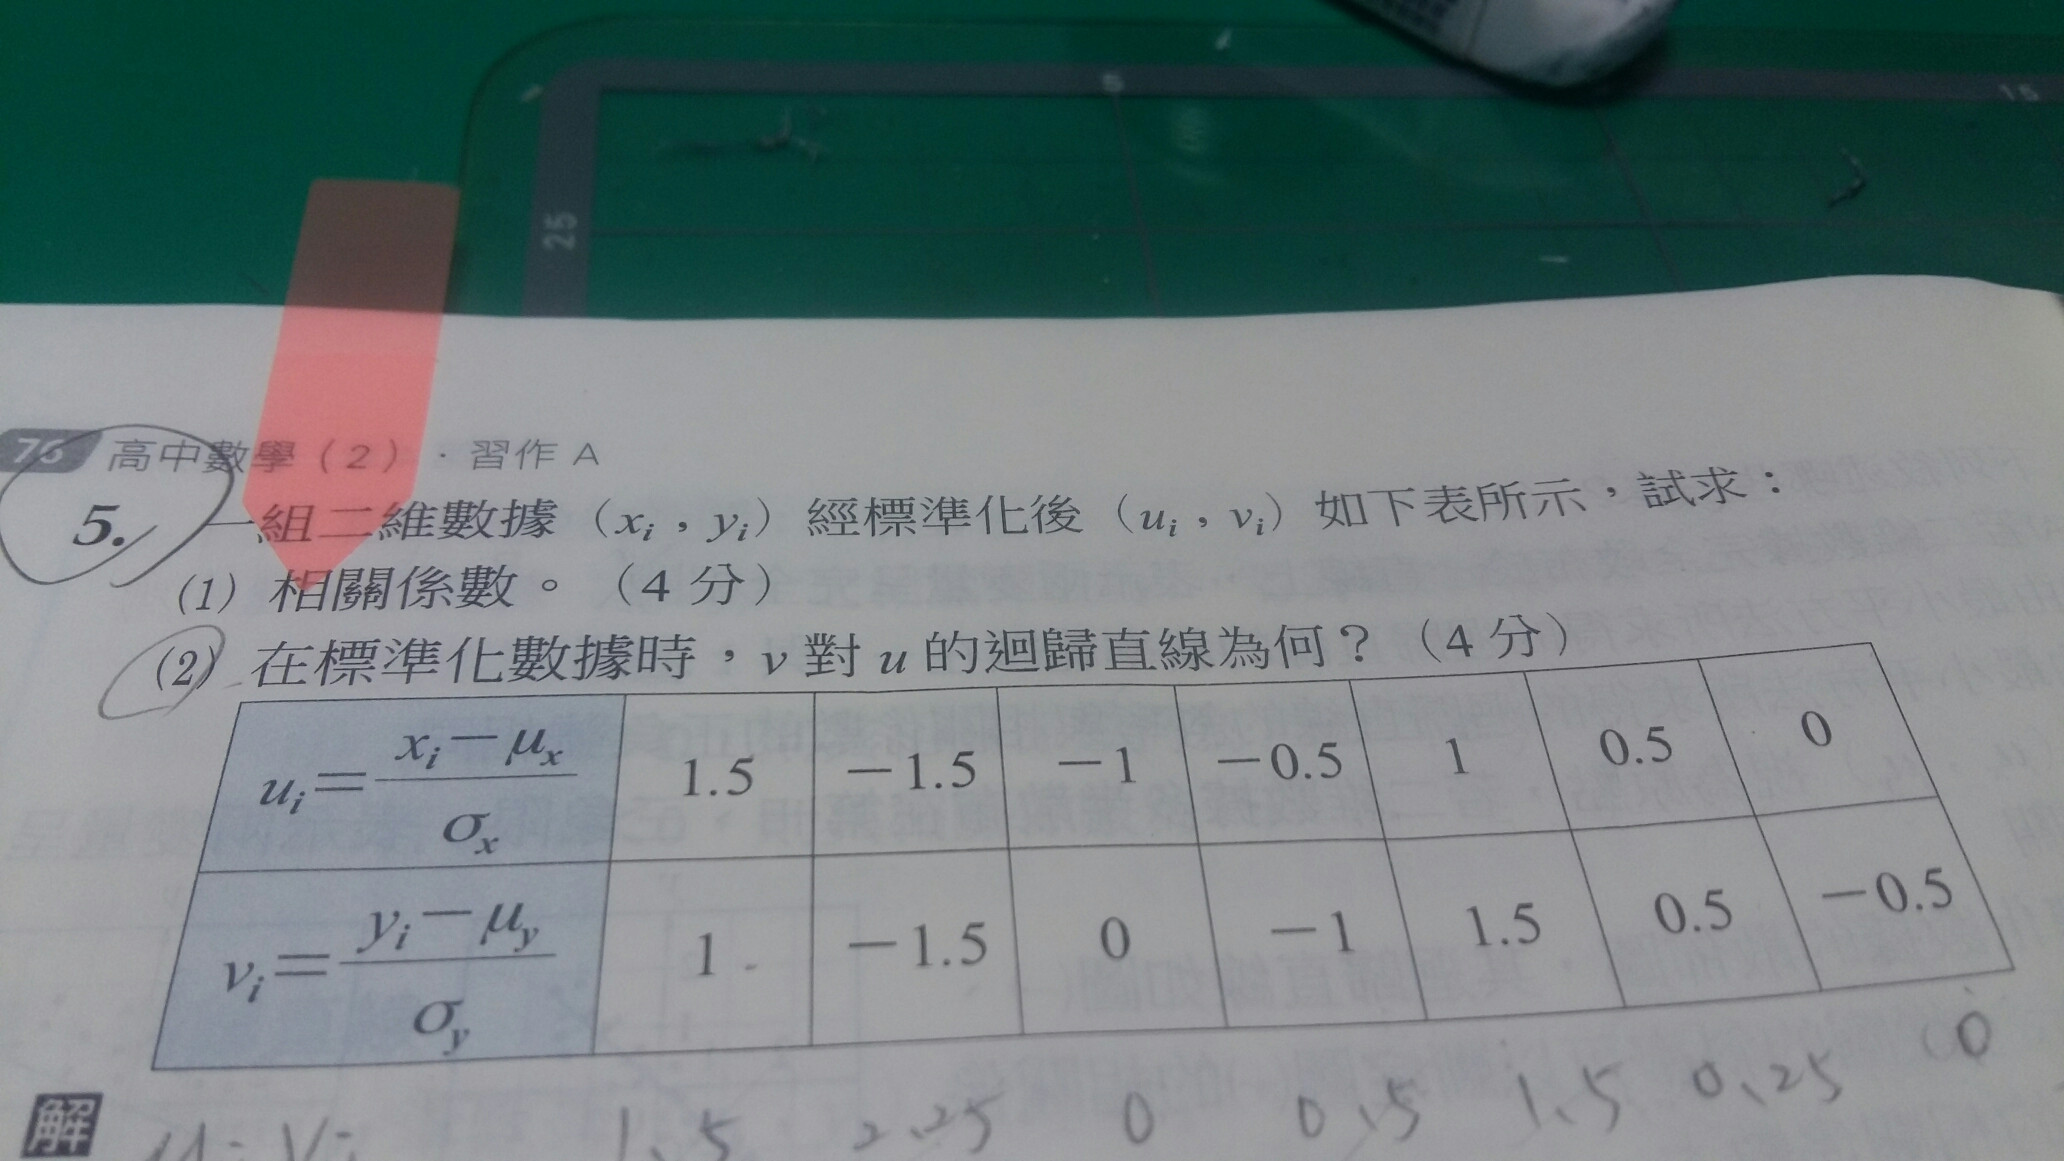 15
25
76 高中數學(2)．習作 A
5. 一組二維數據（xᵢ，yᵢ）經標準化後（uᵢ，vᵢ）如下表所示，試求：
(1) 相關係數。（4 分）
(2) 在標準化數據時，v 對 u 的迴歸直線為何？（4 分）
uᵢ=(xᵢ−μₓ)/σₓ 1.5 −1.5 −1 −0.5 1 0.5 0
vᵢ=(yᵢ−μᵧ)/σᵧ 1 −1.5 0 −1 1.5 0.5 −0.5
解 1.5 2.25 0 0.5 1.5 0.25 0